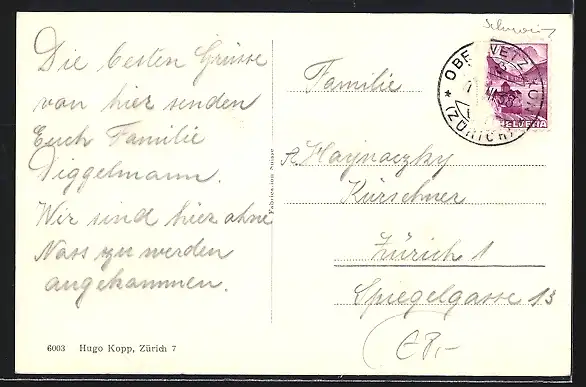 Die besten Grüsse
von hier senden
Euch Familie
Diggelmann.
Wir sind hier ohne
Nass zu werden
angekommen.
6003 Hugo Kopp, Zürich 7
Fabrication Suisse
Schweiz
HELVETIA
(ZÜRICH)
Familie
A. Haynaczky
Kürschner
Zürich 1
Spiegelgasse 13
€8,-